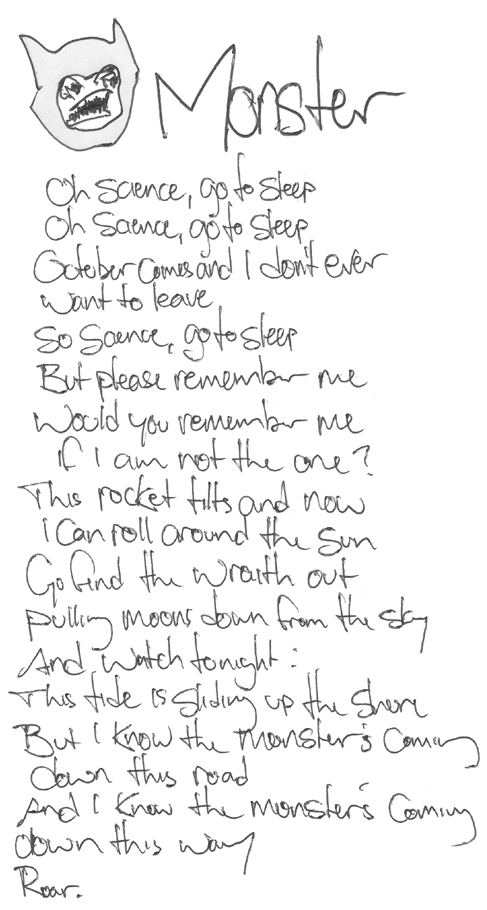 Monster
Oh Science, go to sleep
Oh Science, go to sleep
October comes and I don't ever
want to leave
So Science, go to sleep
But please remember me
Would you remember me
If I am not the one?
This rocket tilts and now
I can roll around the sun
Go find the wraith out
pulling moons down from the sky
And watch tonight:
This tide is sliding up the shore
But I know the monster's coming
down this road
And I know the monster's coming
down this way
Roar.